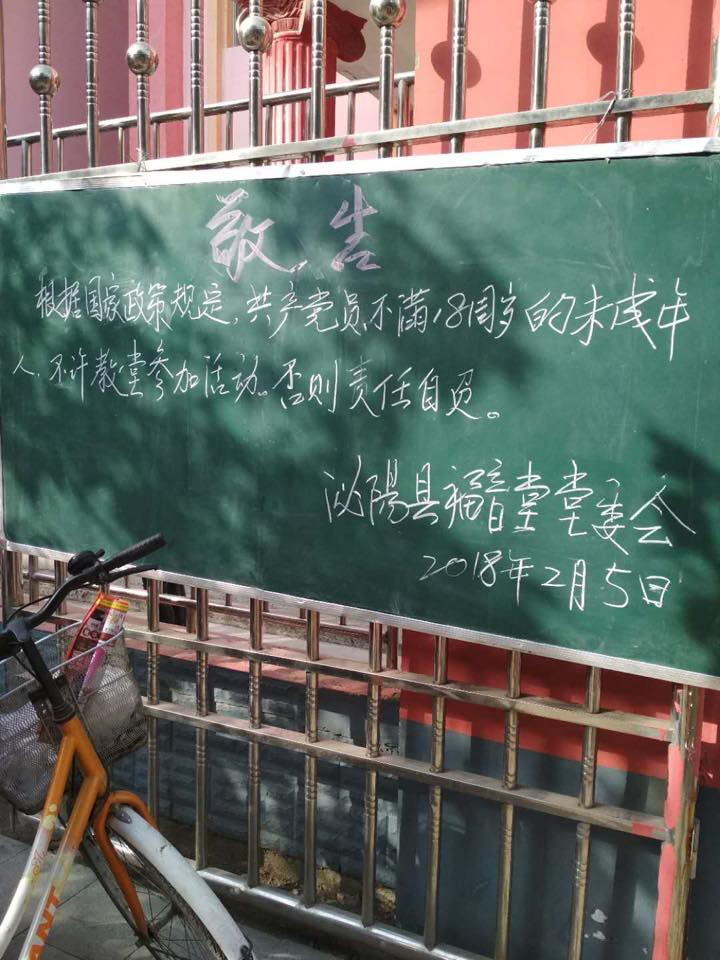 敬告
根据国家政策规定,共产党员、不满18周岁的未成年
人、不许教堂参加活动。否则责任自负。
泌阳县福音堂堂委会
2018年2月5日
ANT